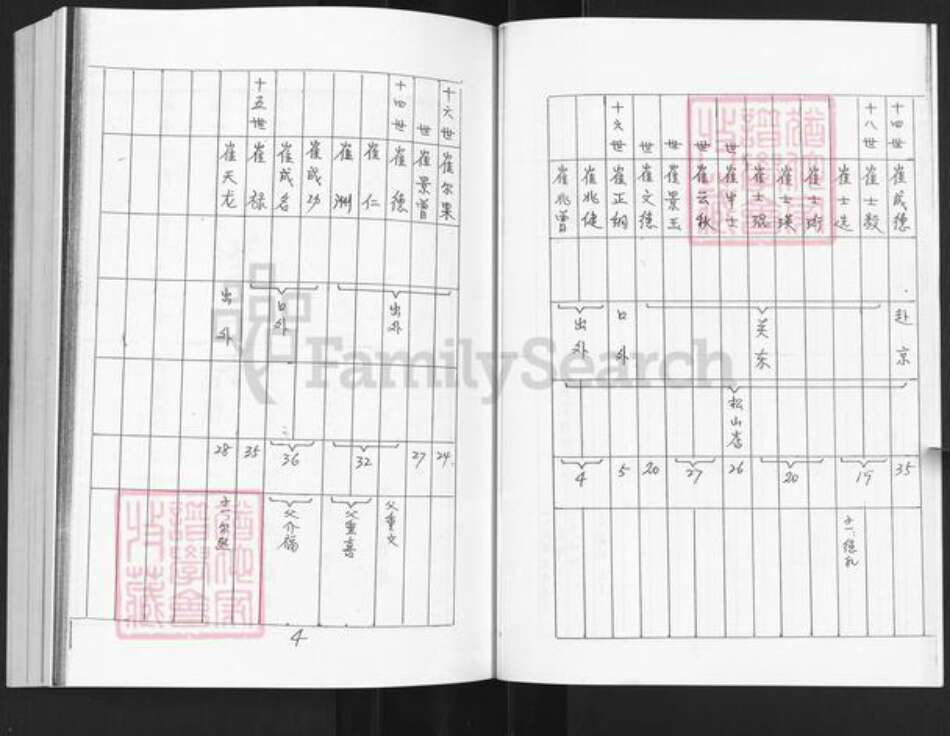 十四世 崔成德 赴京 35
十八世 崔士毅
崔士选 19 子一德礼
崔士珩
崔士瑛 20
崔士琨
世 崔中士 26
世 崔云秋
世 崔景玉 27
世 崔文德 20
关东
十六世 崔正纲 口外 5
崔兆健
崔兆曾 出外 4
松山店
十六世 崔尔果 24
世 崔景曾 27
十四世 崔德 父重文
崔仁
崔洲 32 父重喜
出外
崔成功
崔成名 36 父介福
十五世 崔禄 35
口外
崔天龙 出外 28
4
FamilySearch